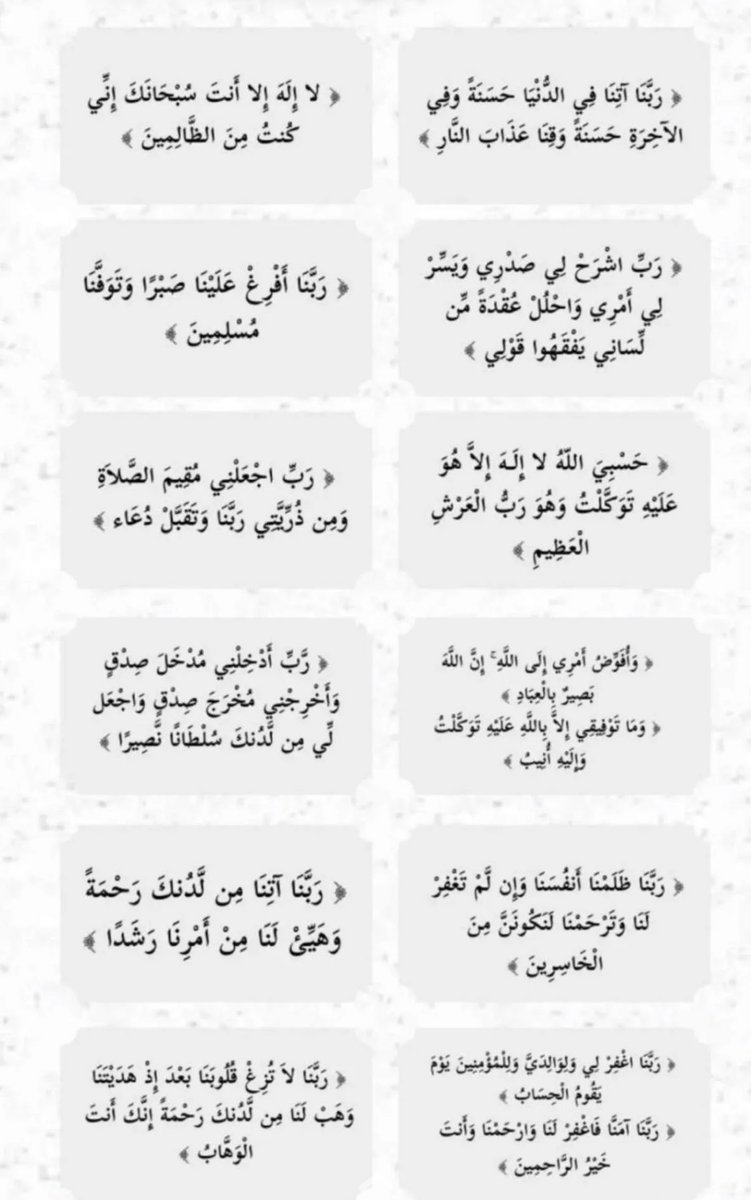 ﴿ رَبَّنَا آتِنَا فِي الدُّنْيَا حَسَنَةً وَفِي
الآخِرَةِ حَسَنَةً وَقِنَا عَذَابَ النَّارِ ﴾
﴿ لا إِلَهَ إِلا أَنتَ سُبْحَانَكَ إِنِّي
كُنتُ مِنَ الظَّالِمِينَ ﴾
﴿ رَبِّ اشْرَحْ لِي صَدْرِي وَيَسِّرْ
لِي أَمْرِي وَاحْلُلْ عُقْدَةً مِّن
لِّسَانِي يَفْقَهُوا قَوْلِي ﴾
﴿ رَبَّنَا أَفْرِغْ عَلَيْنَا صَبْرًا وَتَوَفَّنَا
مُسْلِمِينَ ﴾
﴿ حَسْبِيَ اللّهُ لا إِلَـهَ إِلاَّ هُوَ
عَلَيْهِ تَوَكَّلْتُ وَهُوَ رَبُّ الْعَرْشِ
الْعَظِيمِ ﴾
﴿ رَبِّ اجْعَلْنِي مُقِيمَ الصَّلاَةِ
وَمِن ذُرِّيَّتِي رَبَّنَا وَتَقَبَّلْ دُعَاء ﴾
﴿ وَأُفَوِّضُ أَمْرِي إِلَى اللَّهِ ۚ إِنَّ اللَّهَ
بَصِيرٌ بِالْعِبَادِ ﴾
﴿ وَمَا تَوْفِيقِي إِلاَّ بِاللَّهِ عَلَيْهِ تَوَكَّلْتُ
وَإِلَيْهِ أُنِيبُ ﴾
﴿ رَّبِّ أَدْخِلْنِي مُدْخَلَ صِدْقٍ
وَأَخْرِجْنِي مُخْرَجَ صِدْقٍ وَاجْعَل
لِّي مِن لَّدُنكَ سُلْطَانًا نَّصِيرًا ﴾
﴿ رَبَّنَا ظَلَمْنَا أَنفُسَنَا وَإِن لَّمْ تَغْفِرْ
لَنَا وَتَرْحَمْنَا لَنَكُونَنَّ مِنَ
الْخَاسِرِينَ ﴾
﴿ رَبَّنَا آتِنَا مِن لَّدُنكَ رَحْمَةً
وَهَيِّئْ لَنَا مِنْ أَمْرِنَا رَشَدًا ﴾
﴿ رَبَّنَا اغْفِرْ لِي وَلِوَالِدَيَّ وَلِلْمُؤْمِنِينَ يَوْمَ
يَقُومُ الْحِسَابُ ﴾
﴿ رَبَّنَا آمَنَّا فَاغْفِرْ لَنَا وَارْحَمْنَا وَأَنتَ
خَيْرُ الرَّاحِمِينَ ﴾
﴿ رَبَّنَا لاَ تُزِغْ قُلُوبَنَا بَعْدَ إِذْ هَدَيْتَنَا
وَهَبْ لَنَا مِن لَّدُنكَ رَحْمَةً إِنَّكَ أَنتَ
الْوَهَّابُ ﴾